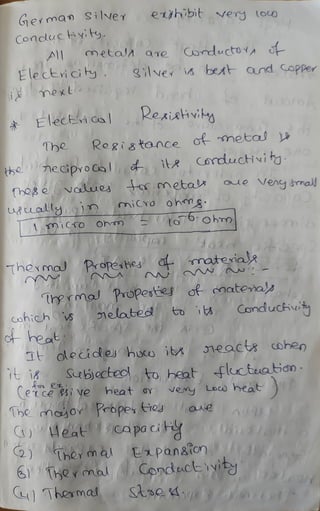 German silver exhibit very low
conductivity.
All metals are conductors of
Electricity. Silver is best and copper
is next.
* Electrical Resistivity
The Resistance of metal is
the reciprocal of its conductivity.
These values for metals are very small
usually in micro ohms.
1 micro ohm = 10-6 ohm
Thermal Properties of materials :-
Thermal Properties of materials
which is related to its Conductivity
of heat.
It decides how its reacts when
it is subjected to heat fluctuation.
(excessive heat or very low heat)
The major Properties are
(1) Heat capacity
(2) Thermal Expansion
(3) Thermal Conductivity
(4) Thermal stress.